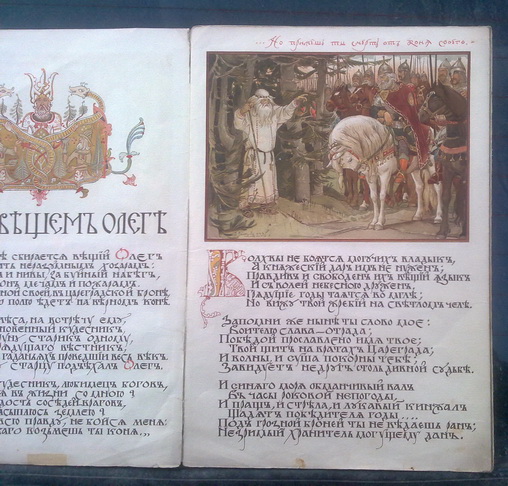 ...Но примешь ты смерть отъ коня своего.
ВѢЩЕМЪ ОЛЕГѢ
сбирается вѣщій Олегъ
неразумнымъ хозарамъ:
и нивы, за буйный набѣгъ,
мечамъ и пожарамъ.
своей, въ цареградской бронѣ,
полю ѣдетъ на вѣрномъ конѣ.
лѣса, на встрѣчу ему,
кудесникъ,
старикъ одному,
грядущаго вѣстникъ,
гаданьяхъ проведшій весь вѣкъ.
старцу подъѣхалъ Олегъ.
кудесникъ, любимецъ боговъ,
въ жизни со мною?
радость сосѣдей-враговъ,
засыплюсь землею?
всю правду, не бойся меня:
возьмешь ты коня...
Волхвы не боятся могучихъ владыкъ,
А княжескій даръ имъ не нуженъ;
Правдивъ и свободенъ ихъ вѣщій языкъ
И съ волей небесною друженъ.
Грядущіе годы таятся во мглѣ;
Но вижу твой жребій на свѣтломъ челѣ.
Запомни же нынѣ ты слово мое:
Воителю слава—отрада;
Побѣдой прославлено имя твое;
Твой щитъ на вратахъ Цареграда;
И волны, и суша покорны тебѣ;
Завидуетъ недругъ столь дивной судьбѣ.
И синяго моря обманчивый валъ
Въ часы роковой непогоды,
И пращъ, и стрѣла, и лукавый кинжалъ
Щадятъ побѣдителя годы....
Подъ грозной броней ты не вѣдаешь ранъ;
Незримый хранитель могущему данъ.